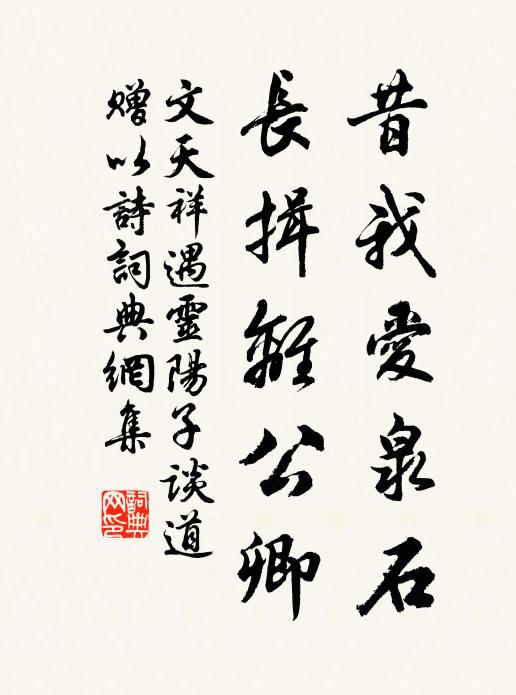 昔我愛泉石
長揖離公卿
文天祥遇靈陽子談道
贈以詩詞典網集
詞典網印